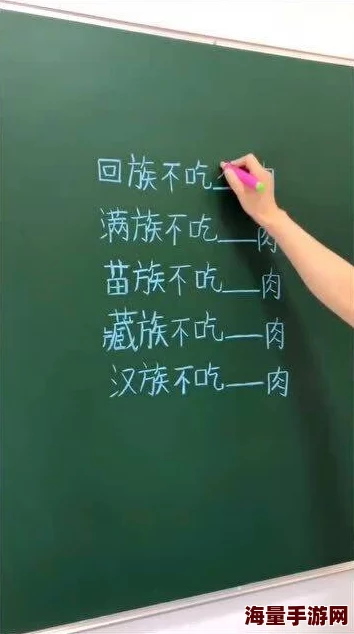 回族不吃__肉
满族不吃__肉
苗族不吃__肉
藏族不吃__肉
汉族不吃__肉
海量手游网